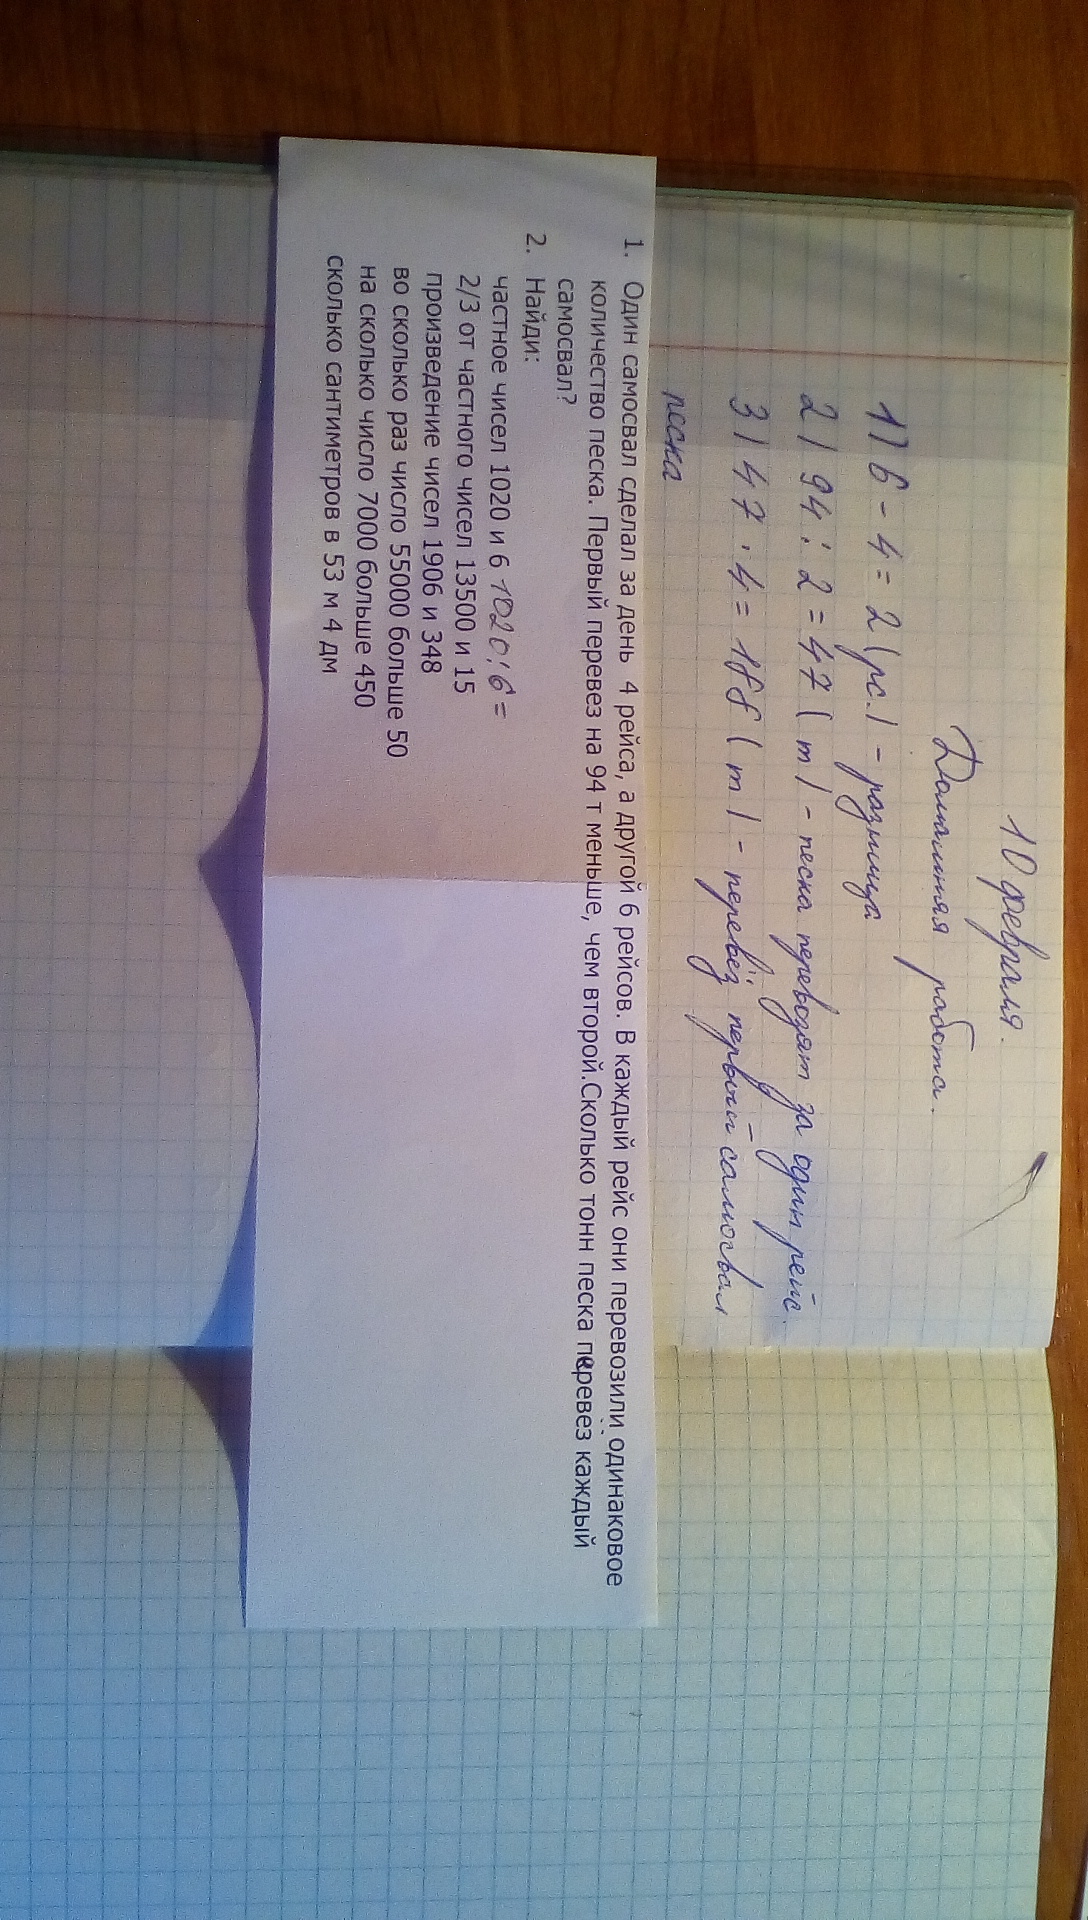 10 февраля.
Домашняя работа.
1) 6 - 4 = 2 (рс.) - разница
2) 94 : 2 = 47 (т) - песка перевозят за один рейс.
3) 47 · 4 = 188 (т) - перевёз первый самосвал
песка
1. Один самосвал сделал за день 4 рейса, а другой 6 рейсов. В каждый рейс они перевозили одинаковое
количество песка. Первый перевез на 94 т меньше, чем второй.Сколько тонн песка перевез каждый
самосвал?
2. Найди:
частное чисел 1020 и 6 1020:6=
2/3 от частного чисел 13500 и 15
произведение чисел 1906 и 348
во сколько раз число 55000 больше 50
на сколько число 7000 больше 450
сколько сантиметров в 53 м 4 дм